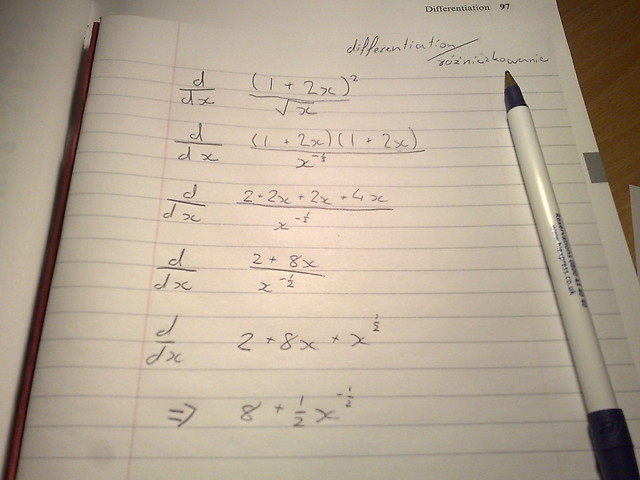 Differentiation 97
differentiation/różniczkowanie
d/dx (1 + 2x)²/√x
d/dx (1 + 2x)(1 + 2x)/x^-½
d/dx 2 + 2x + 2x + 4x/x^-½
d/dx 2 + 8x/x^-½
d/dx 2 + 8x + x^½
⇒ 8 + ½x^-½